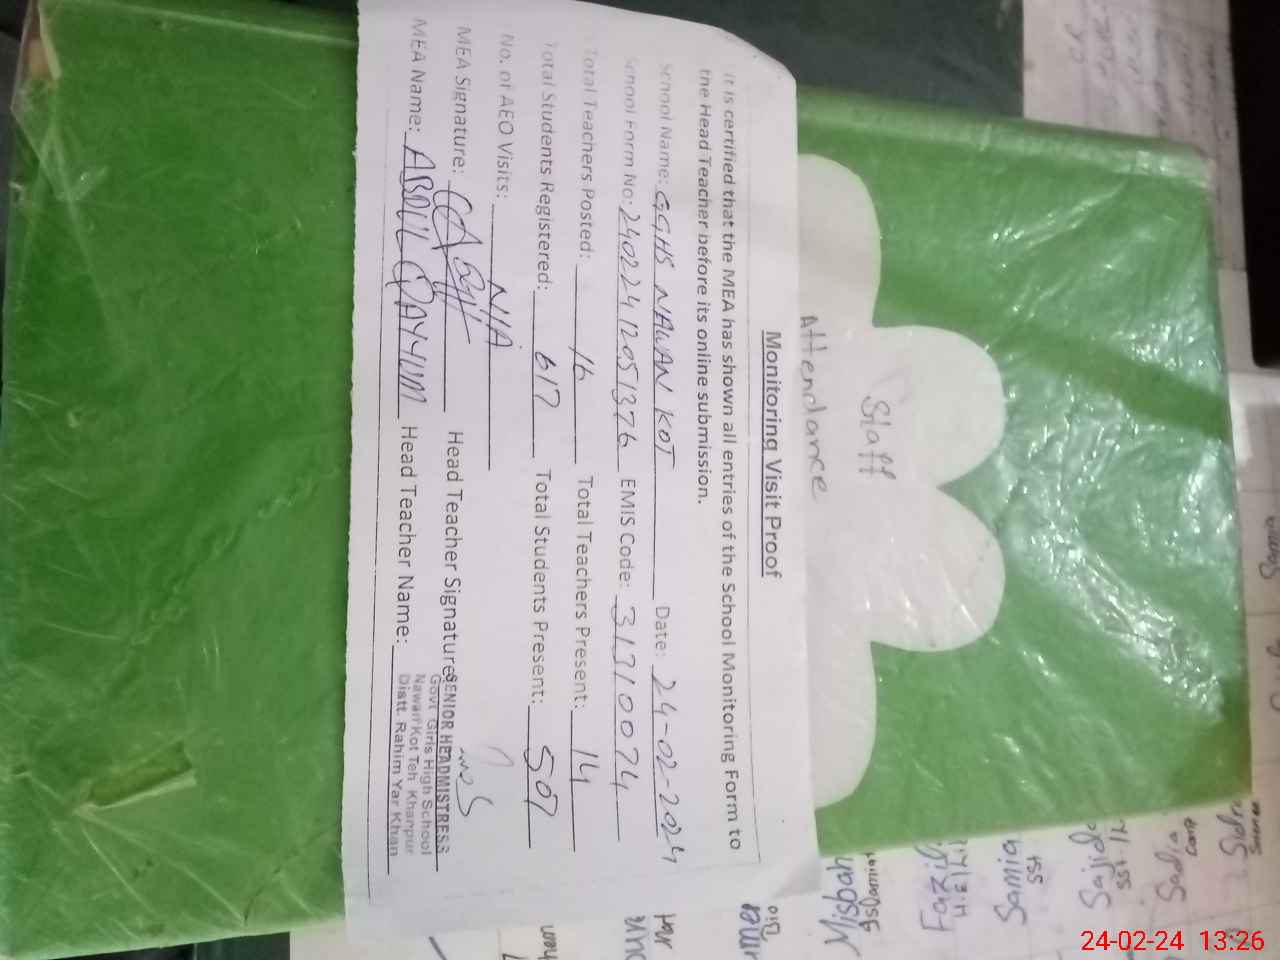 Monitoring Visit Proof
It is certified that the MEA has shown all entries of the School Monitoring Form to
the Head Teacher before its online submission.
School Name: GGHS NAWAN KOT Date: 24-02-2024
School Form No: 24022412051376 EMIS Code: 31310074
Total Teachers Posted: 16 Total Teachers Present: 14
Total Students Registered: 617 Total Students Present: 507
No. of AEO Visits: N/A
MEA Signature: Head Teacher Signature:
SENIOR HEADMISTRESS
Govt Girls High School
Nawan Kot Teh Khanpur
Distt. Rahim Yar Khan
MEA Name: ABDUL QAYYUM Head Teacher Name:
Staff
Attendance
Misbah
Samia
SST
Sadia
Comp
24-02-24 13:26